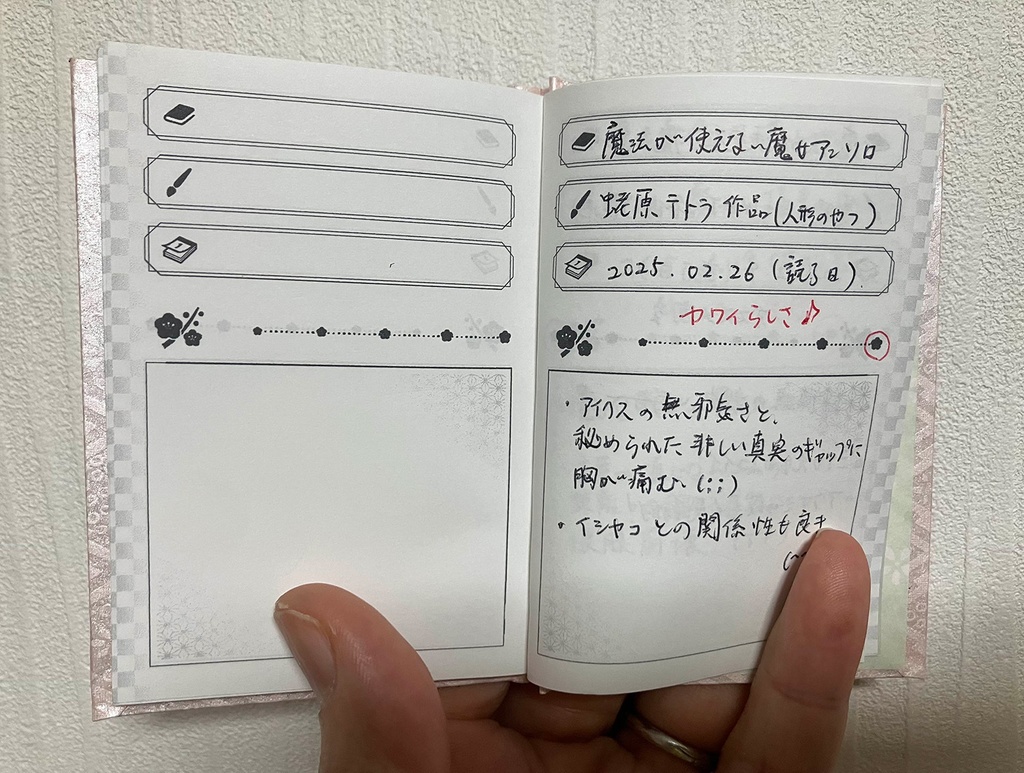 魔法が使えない魔女アンソロ
蛯原テトラ作品(人形のやつ)
2025.02.26(読了日)
カワイらしさ♪
・アイクスの無邪気さと、
秘められた悲しい真実のギャップに
胸が痛む(;;)
・イシャコとの関係性も良き